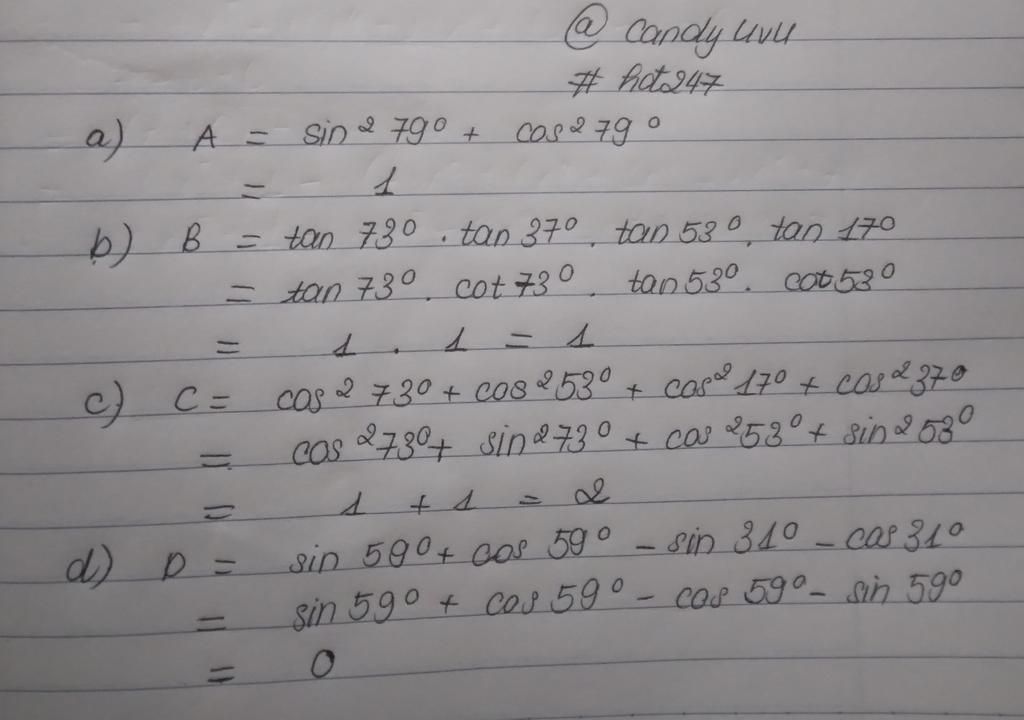 @ candy uvu
# hot247
a) A = sin² 79⁰ + cos² 79⁰
= 1
b) B = tan 73⁰ . tan 37⁰ . tan 53⁰ . tan 17⁰
= tan 73⁰ . cot 73⁰ . tan 53⁰ . cot 53⁰
= 1 . 1 = 1
c) C = cos² 73⁰ + cos² 53⁰ + cos² 17⁰ + cos² 37⁰
= cos² 73⁰ + sin² 73⁰ + cos² 53⁰ + sin² 53⁰
= 1 + 1 = 2
d) D = sin 59⁰ + cos 59⁰ - sin 31⁰ - cos 31⁰
= sin 59⁰ + cos 59⁰ - cos 59⁰ - sin 59⁰
= 0